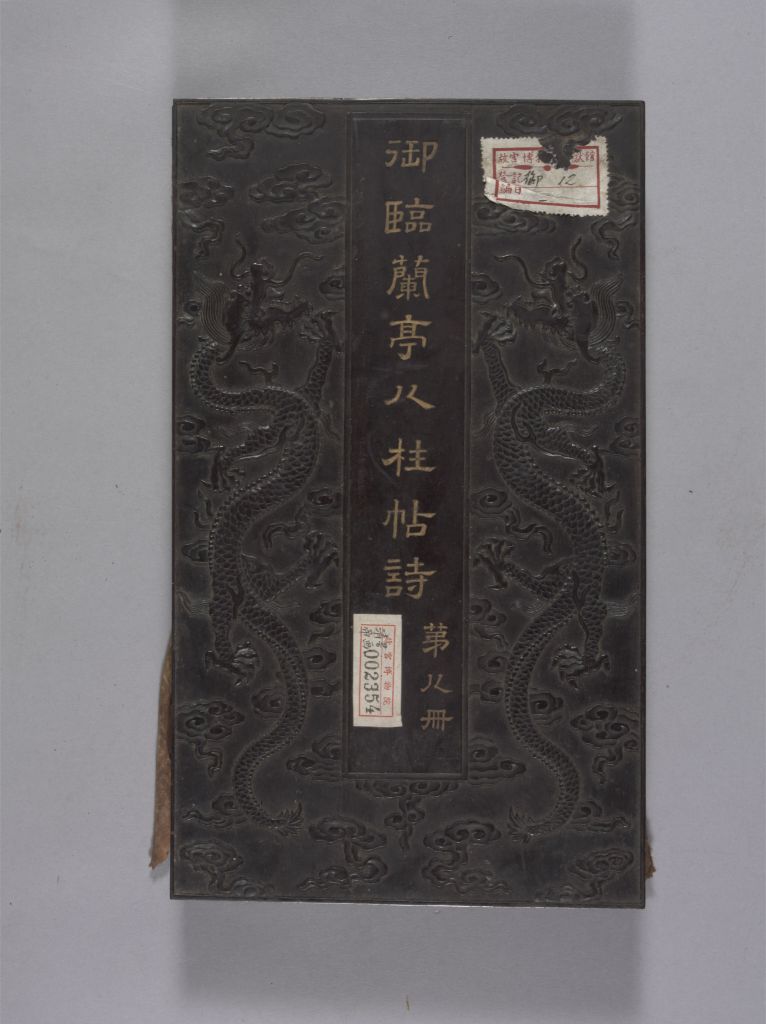 御臨蘭亭八柱帖詩
第八冊
故宮博
登記 御 12
編目
故宮博物院
002354